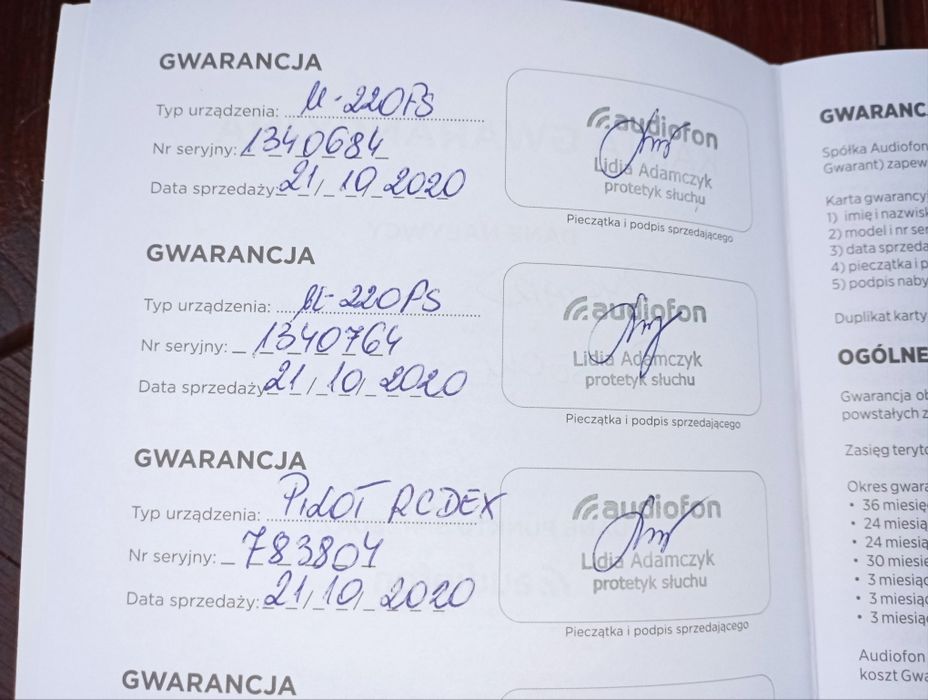 GWARANCJA
Typ urządzenia: M-220PS
Nr seryjny: 1340684
Data sprzedaży: 21/10 2020
audiofon
Lidia Adamczyk
protetyk słuchu
Pieczątka i podpis sprzedającego
GWARANCJA
Typ urządzenia: M-220PS
Nr seryjny: 1340764
Data sprzedaży 21/10/2020
audiofon
Lidia Adamczyk
protetyk słuchu
Pieczątka i podpis sprzedającego
GWARANCJA
Typ urządzenia: PILOT RCDEX
Nr seryjny: 783804
Data sprzedaży: 21/10/2020
audiofon
Lidia Adamczyk
protetyk słuchu
Pieczątka i podpis sprzedającego
GWARANCJA
GWARANC
Spółka Audiofon
Gwarant) zapew
Karta gwarancy
1) imię i nazwisk
2) model i nr ser
3) data sprzeda
4) pieczątka i p
5) podpis naby
Duplikat karty
OGÓLNE
Gwarancja ob
powstałych z
Zasięg teryto
Okres gwara
• 36 miesię
• 24 miesią
• 24 miesią
• 30 miesię
• 3 miesiąc
• 3 miesiąc
• 3 miesiąc
Audiofon
koszt Gwa